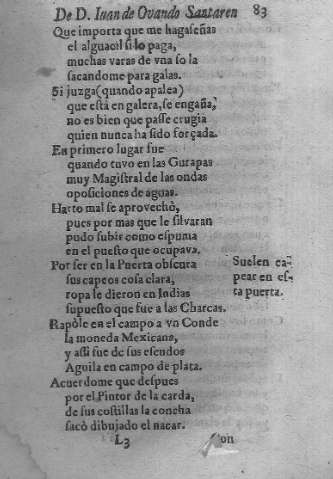 De D. Iuan de Ovando Santaren 83
Que importa que me hagaseñas
el alguacil si lo paga,
muchas varas de vna so la
sacandome para galas.
Si juzga (quando apalea)
que està en galera, se engaña,
no es bien que passe crugia
quien nunca ha sido forçada.
En primero lugar fue
quando tuvo en las Gurapas
muy Magistral de las ondas
oposiciones de aguas.
Harto mal se aprovechò,
pues por mas que le silvaran
pudo subir como espuma
en el puesto que ocupava.
Por ser en la Puerta obscura
sus capeos cosa clara,
ropa le dieron en Indias
supuesto que fue a las Charcas.
Suelen ca-
pear en es-
ta puerta.
Rapòle en el campo a vn Conde
la moneda Mexicana,
y assi fue de sus escudos
Aguila en campo de plata.
Acuerdome que despues
por el Pintor de la carda,
de sus costillas la concha
sacò dibujado el nacar.
L3 Con